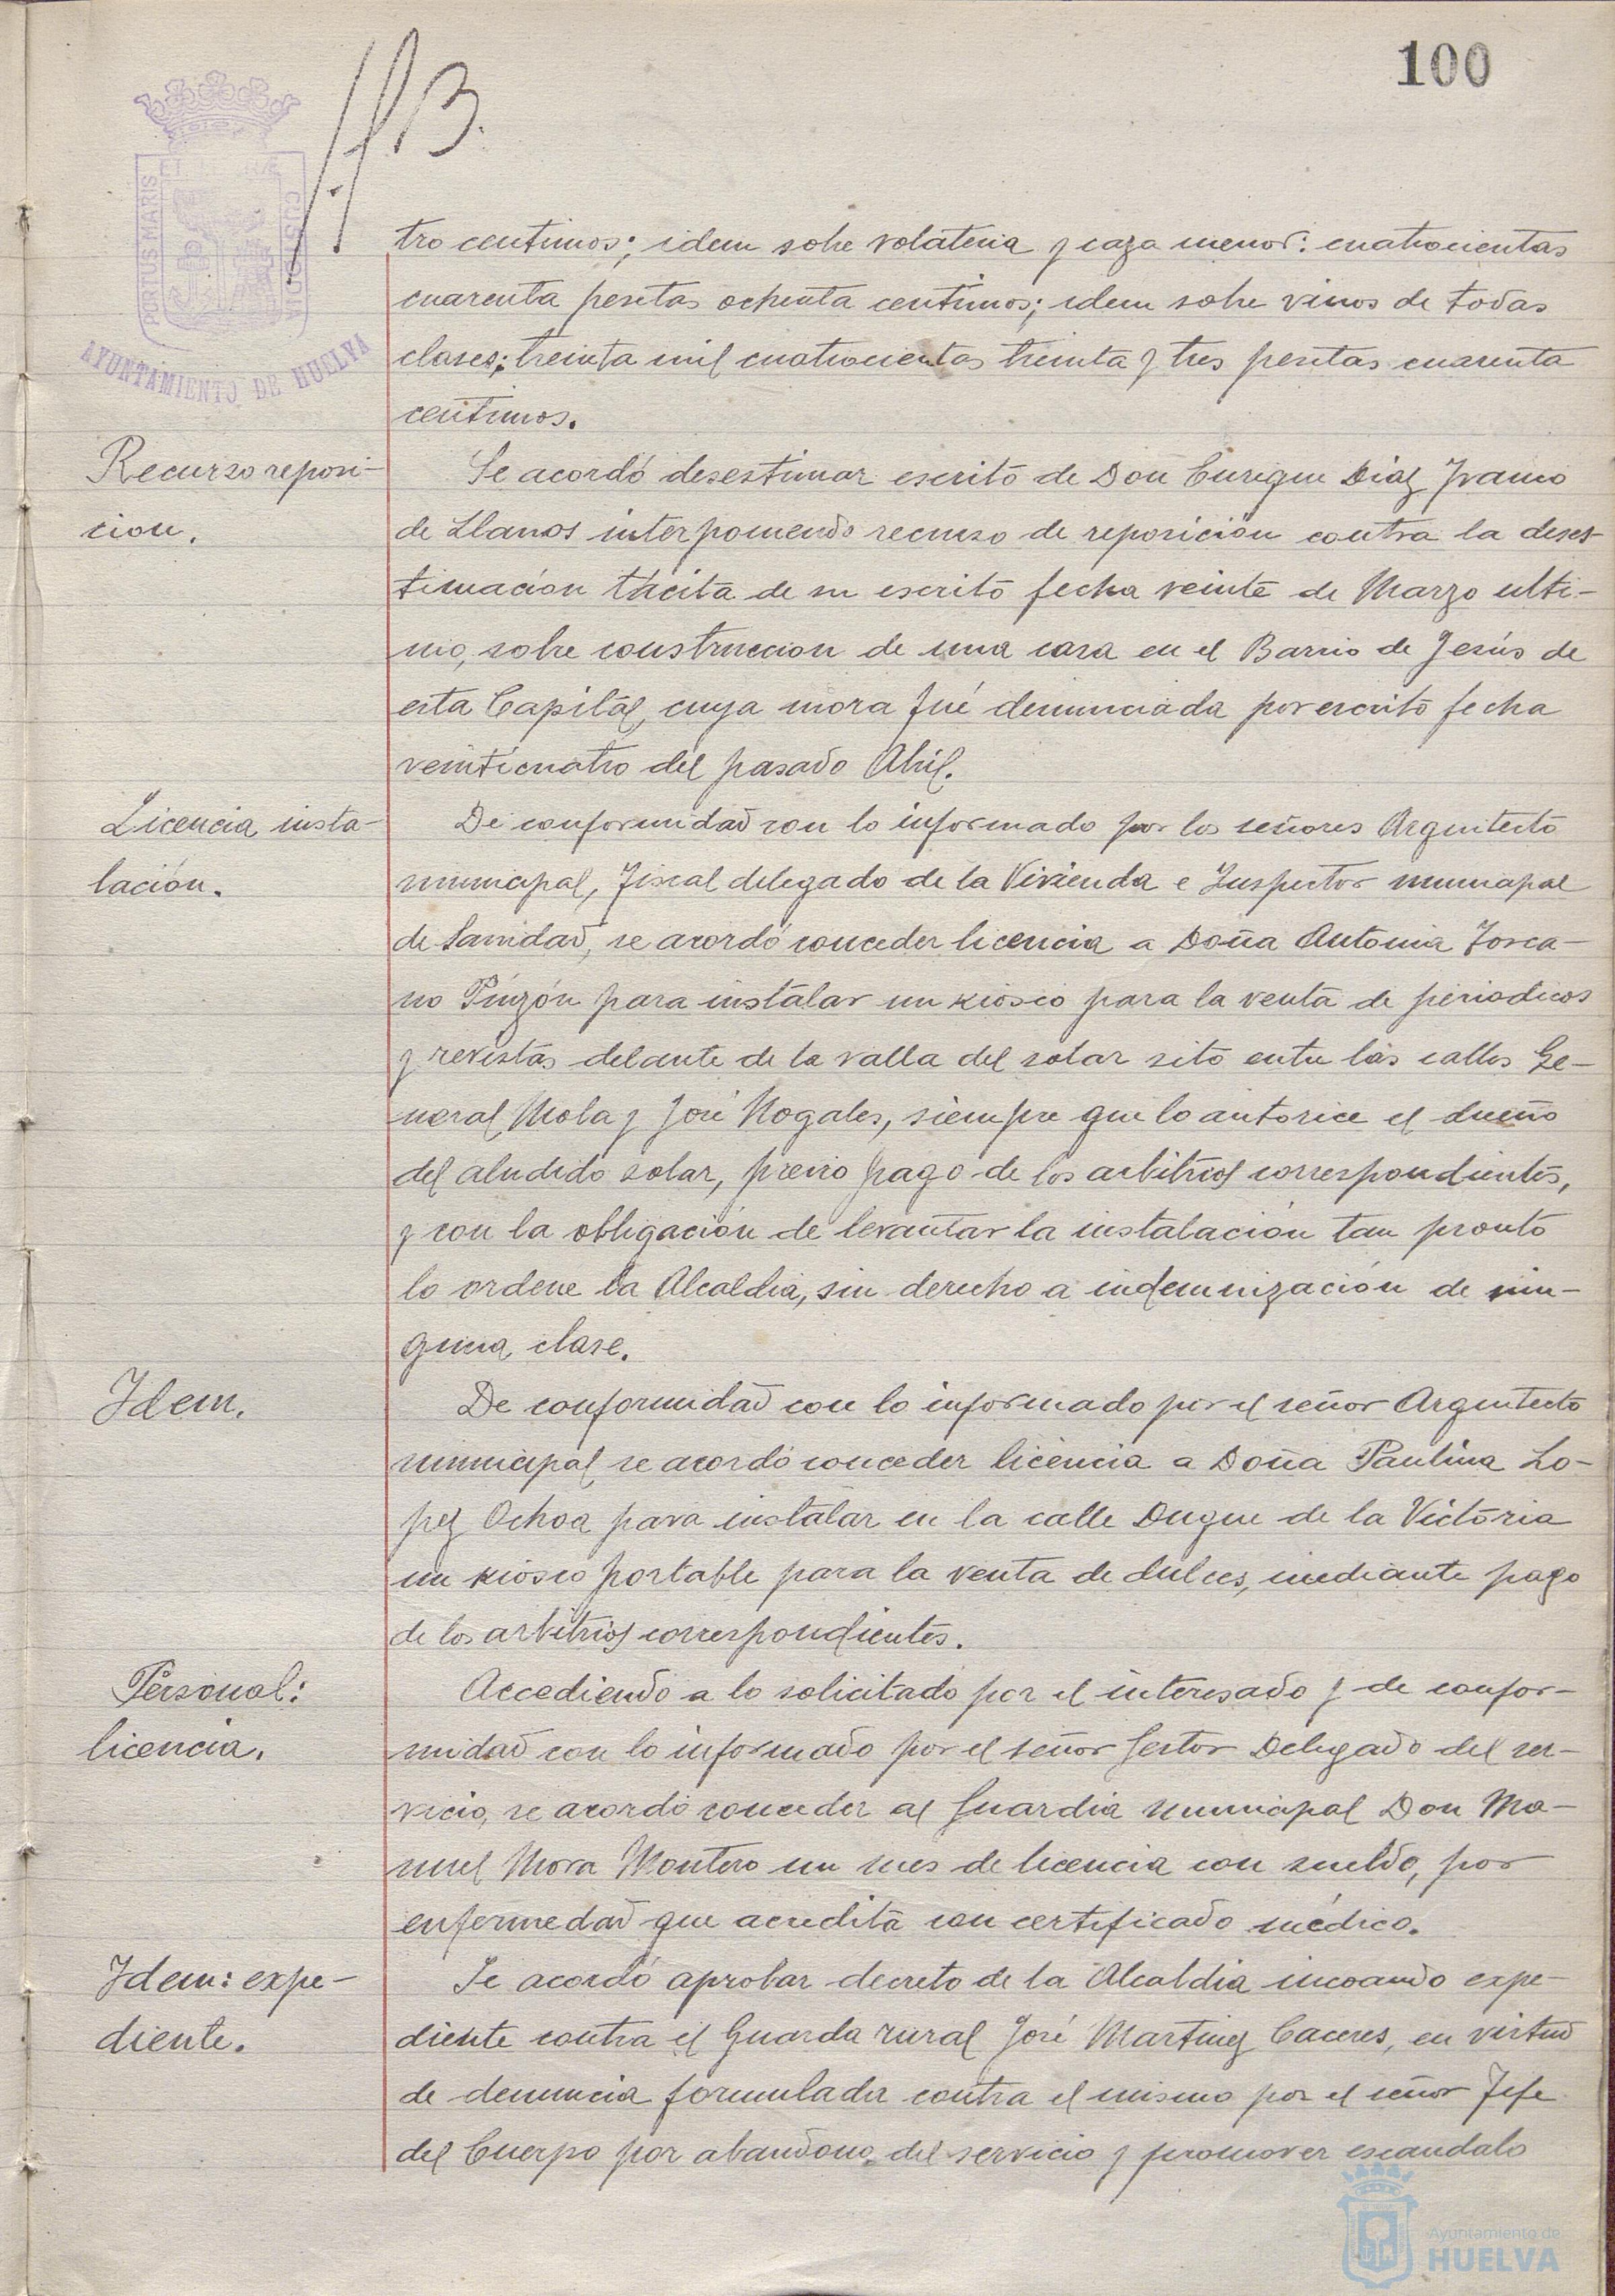 100
PORTUS MARIS
CUSTODIA
AYUNTAMIENTO DE HUELVA
tro centimos; idem sobre volateria y caza menor: cuatrocientas
cuarenta pesetas ochenta centimos; idem sobre vinos de todas
clases: treinta mil cuatrocientas treinta y tres pesetas cuarenta
centimos.
Recurso reposi-
cion.
Se acordó desestimar escrito de Don Enrique Diaz Franco
de Llanos interponiendo recurso de reposición contra la deses-
timación tácita de su escrito fecha veinte de Marzo ulti-
mo, sobre construccion de una casa en el Barrio de Jesús de
esta Capital, cuya mora fué denunciada por escrito fecha
veinticuatro del pasado Abril.
Licencia insta-
lación.
De conformidad con lo informado por los señores Arquitecto
municipal, Fiscal delegado de la Vivienda e Inspector municipal
de Sanidad, se acordó conceder licencia a Doña Antonia Tosca-
no Pinzón para instalar un kiosco para la venta de periodicos
y revistas delante de la valla del solar sito entre las calles Ge-
neral Mola y José Nogales, siempre que lo autorice el dueño
del aludido solar, previo pago de los arbitrios correspondientes,
y con la obligación de levantar la instalación tan pronto
lo ordene la Alcaldia, sin derecho a indemnización de nin-
guna clase.
Idem.
De conformidad con lo informado por el señor Arquitecto
municipal, se acordó conceder licencia a Doña Paulina Lo-
pez Ochoa para instalar en la calle Duque de la Victoria
un kiosco portable para la venta de dulces, mediante pago
de los arbitrios correspondientes.
Personal:
licencia.
Accediendo a lo solicitado por el interesado y de confor-
midad con lo informado por el señor Gestor Delegado del ser-
vicio, se acordó conceder al Guardia municipal Don Ma-
nuel Mora Montero un mes de licencia con sueldo, por
enfermedad que acredita con certificado médico.
Idem: expe-
diente.
Se acordó aprobar decreto de la Alcaldia incoando expe-
diente contra el Guarda rural José Martinez Caceres, en virtud
de denuncia formulada contra el mismo por el señor Jefe
del Cuerpo por abandono del servicio y promover escandalo
Ayuntamiento de
HUELVA